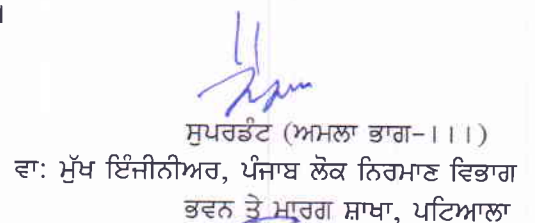 ਸੁਪਰਡੰਟ (ਅਮਲਾ ਭਾਗ-III)
ਵਾ: ਮੁੱਖ ਇੰਜੀਨੀਅਰ, ਪੰਜਾਬ ਲੋਕ ਨਿਰਮਾਣ ਵਿਭਾਗ
ਭਵਨ ਤੇ ਮਾਰਗ ਸ਼ਾਖਾ, ਪਟਿਆਲਾ